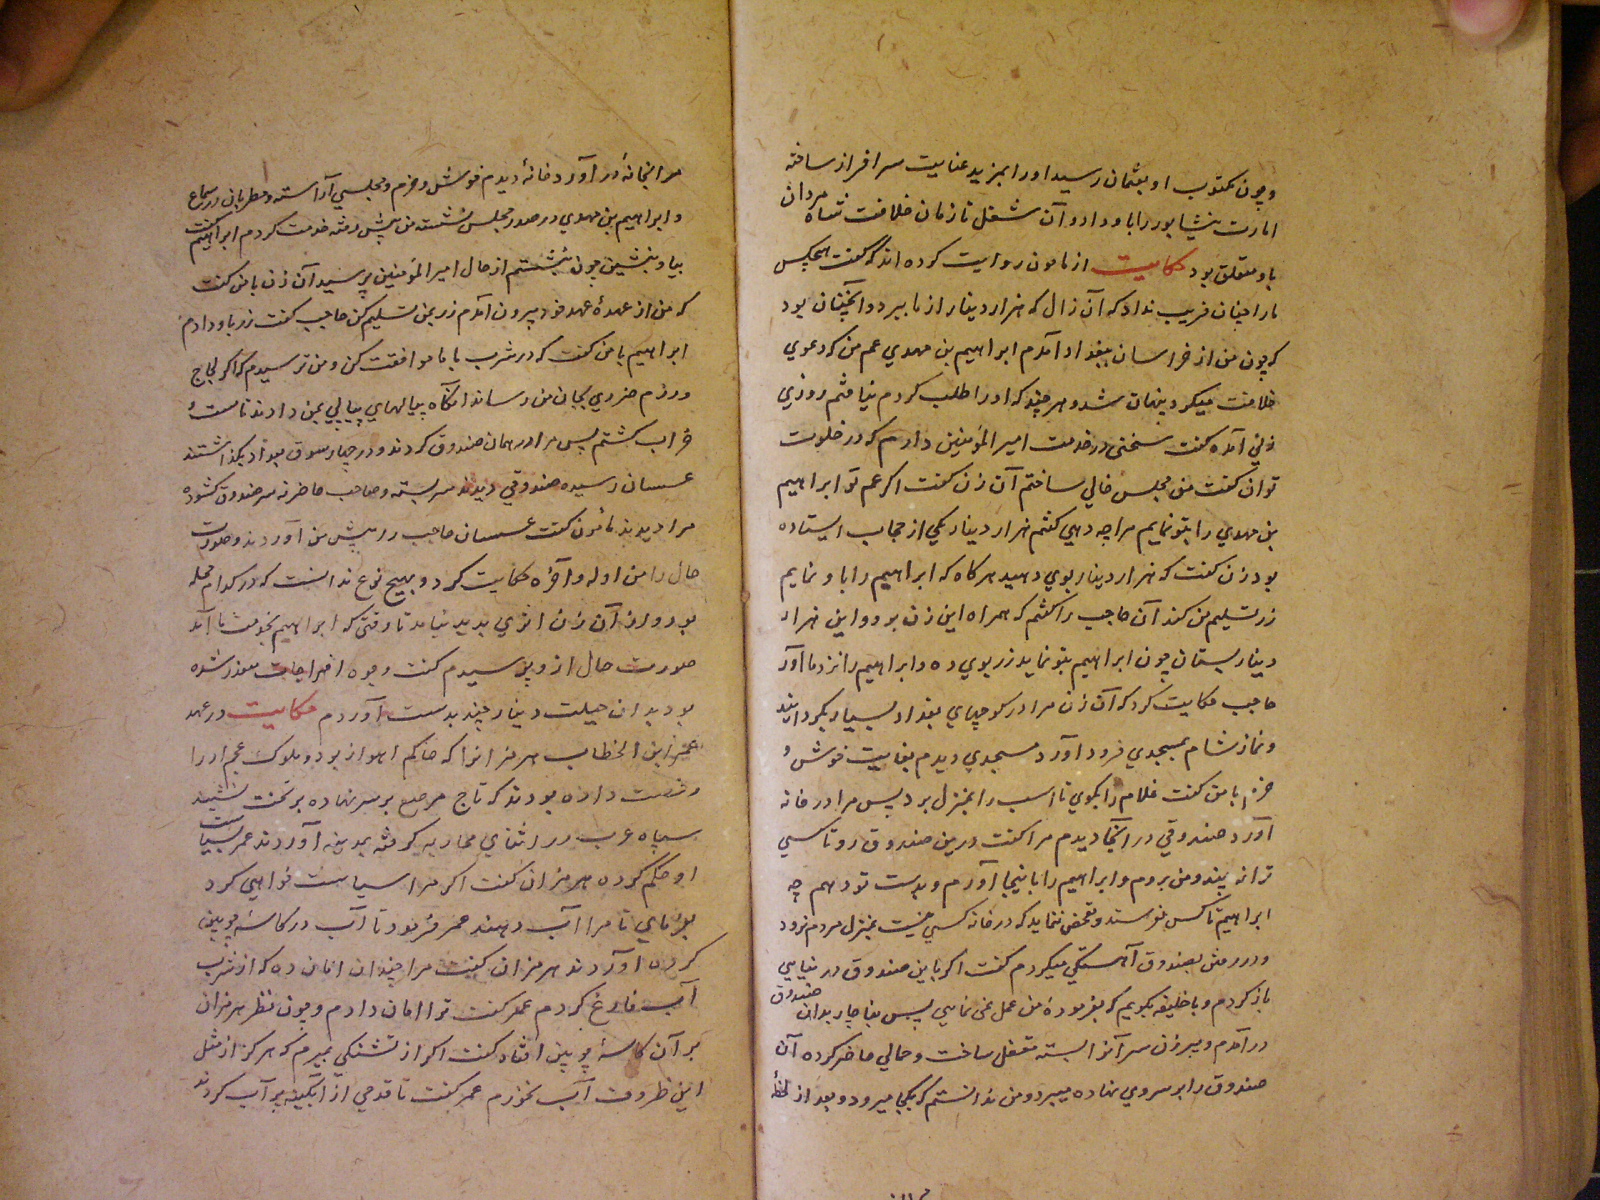 و چون مکتوب او بعثمان رسید او را بمزید عنایت سرافراز ساخته
امارت نیشابور را باو داد و آن شغل تا زمان خلافت شاه مردان
باو متعلق بود حکایت از مامون روایت کرده اند که گفت هیچکس
مارا چنان فریب نداد که آن زال که هزار دینار از ما ببرد و آنچنان بود
که چون من از خراسان ببغداد آمدم ابراهیم بن مهدی عم من که دعوی
خلافت میکرد پنهان شد و هر چند که او را طلب کردم نیافتم روزی
زنی آمده گفت سخنی در خدمت امیر المؤمنین دارم که در خلوت
توان گفت من مجلس خالی ساختم آن زن گفت اگر عم تو ابراهیم
بن مهدی را بتو نمایم مرا چه دهی گفتم هزار دینار یکی از حجاب ایستاده
بود زن گفت که هزار دینار بوی دهید هرگاه که ابراهیم را باو نمایم
زر تسلیم من کند آن حاجب را گفتم که همراه این زن برو و این هزار
دینار بستان چون ابراهیم بتو نماید زر بوی ده و ابراهیم را نزد ما آور
حاجب حکایت کرد که آن زن مرا در کوچهای بغداد بسیار بگردانید
و نماز شام بمسجدی فرود آورد مسجدی دیدم بغایت خوش و
خرم با من گفت غلام را بگوی تا اسب را بمنزل برد پس مرا در خانه
آورد صندوقی در آنجا دیدم مرا گفت درین صندوق رو تا کسی
ترا نه بیند و من بروم و ابراهیم را باینجا آورم و بدست تو دهم چه
ابراهیم تا کس نفرستد و تفحص ننماید که در خانه کسی نیست بمنزل مردم نرود
و در رفتن بصندوق آهستگی میکردم گفت اگر باین صندوق در نیایی
باز گردم و با خلیفه بگویم که بفرموده من عمل نمی نمایی پس بناچار بدان صندوق
در آمدم و پیرزن سر آنرا بسته مقفل ساخت و حمالی حاضر کرده آن
صندوق را بر سر وی نهاده میبرد و من ندانستم که بکجا میرود و بعد از لحظه
مرا بخانه در آورد خانه دیدم خوش و خرم و مجلسی آراسته و مطربان در سماع
و ابراهیم بن مهدی در صدر مجلس نشسته من پیش رفته خدمت کردم ابراهیم گفت
بیا و بنشین چون بنشستم از حال امیر المؤمنین پرسید آن زن با من گفت
که من از عهده عهد خود بیرون آمدم زر بمن تسلیم کن حاجب گفت زر باو دادم
ابراهیم با من گفت که در شرب با ما موافقت کن و من ترسیدم که اگر لجاج
ورزم ضرری بجان من رساند آنگاه پیالهای پیاپی بمن دادند تا مست و
خراب گشتم پس مرا در همان صندوق کردند و در چهار سوق بغداد بگذاشتند
عسسان رسیده صندوقی دیدند سر بسته و صاحب حاضر نه سر صندوق گشوده
مرا دیدند مامون گفت عسسان حاجب را پیش من آوردند و صورت
حال را من اوله و آخره حکایت کرد و بهیچ نوع ندانست که در کدام محله
بود و از آن زن اثری پدید نیامد تا وقتی که ابراهیم بخدمت ما آمد
صورت حال از و پرسیدم گفت وجوه اخراجات متعذر شده
بود بدان حیلت دینار چند بدست آوردم حکایت در عهد
عمر ابن الخطاب هرمزانرا که حاکم اهواز بود و ملوک عجم او را
رخصت داده بودند که تاج مرصع بر سر نهاده بر تخت نشیند
سپاه عرب در اثنای محاربه گرفته بمدینه آوردند عمر بسیاست
او حکم کرده هرمزان گفت اگر مرا سیاست خواهی کرد
بفرمای تا مرا آب دهند عمر فرمود تا آب در کاسه چوبین
کرده آوردند هرمزان گفت مرا چندان امان ده که از شرب
آب فارغ گردم عمر گفت ترا امان دادم و چون نظر هرمزان
بر آن کاسه چوبین افتاد گفت اگر از تشنگی بمیرم که هرگز از مثل
این ظروف آب نخورم عمر گفت تا قدحی از آبگینه پر آب کردند